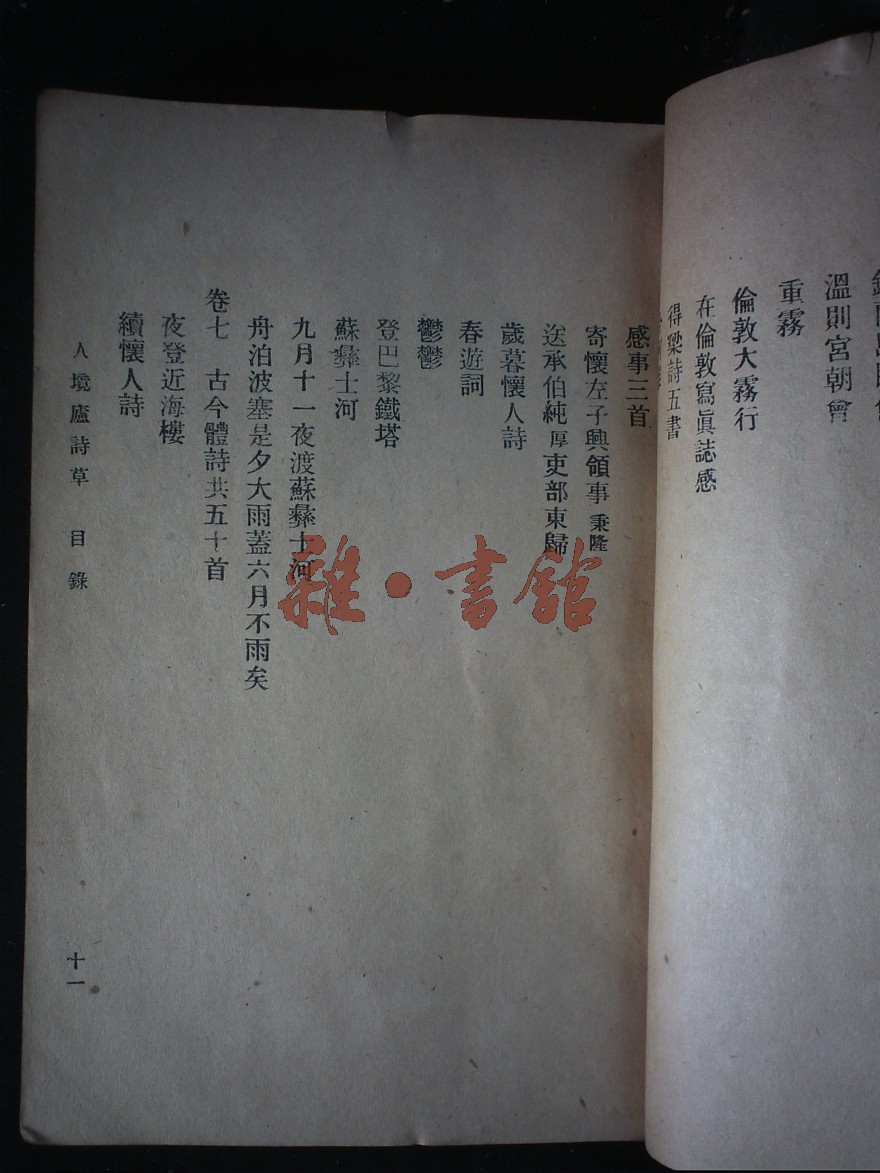 溫則宮朝會
重霧
倫敦大霧行
在倫敦寫眞誌感
得梁詩五書
感事三首
寄懷左子興領事 秉隆
送承伯純 厚 吏部東歸
歲暮懷人詩
春遊詞
鬱鬱
登巴黎鐵塔
蘇彝士河
九月十一夜渡蘇彝士河
舟泊波塞是夕大雨蓋六月不雨矣
卷七 古今體詩共五十首
夜登近海樓
續懷人詩
人境廬詩草 目錄
十一
雜·書館